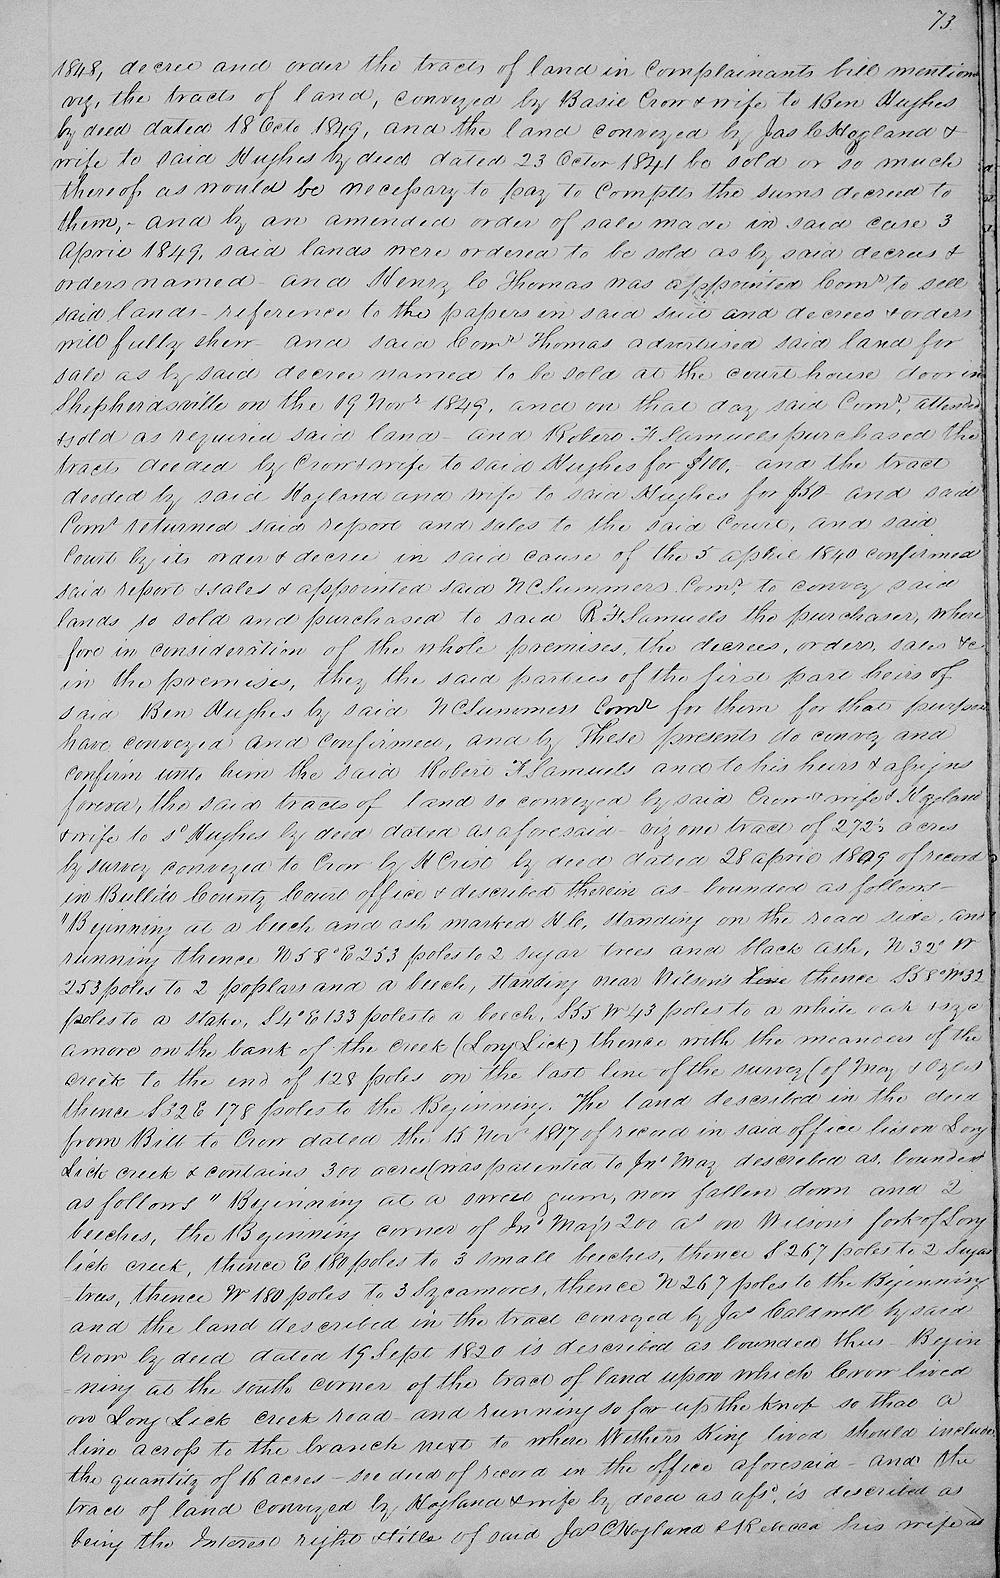 73
1848, decree and order the tracts of land in Complainants bill mention
viz, the tracts of land, conveyed by Basil Crow & wife to Ben Hughes
by deed dated 18 Octo 1849, and the land conveyed by Jas C Hogland &
wife to said Hughes by deed dated 23 Octor 1841 be sold or so much
thereof as would be necessary to pay to Complts the sums decreed to
them,- and by an amended order of sale made in said case 3
April 1849, said lands were ordered to be sold as by said decrees &
orders named - and Henry C Thomas was appointed Comr to sell
said lands - reference to the papers in said suit and decrees & orders
will fully shew - and said Comr Thomas advertised said land for
sale as by said decree named to be sold at the court house door in
Shepherdsville on the 19 Novr 1849, and on that day said Comr, attended
& sold as required said land - and Robert F Samuels purchased the
tracts deeded by Crow & wife to said Hughes for $100,- and the tract
deeded by said Hogland and wife to said Hughes for $50 - and said
Comr returned said report and sales to the said Court, and said
Court by its order & decree in said cause of the 5 april 1840 confirmed
said report & sales & appointed said N C Summers Comr, to convey said
lands so sold and purchased to said R F Samuels the purchaser, where
fore in consideration of the whole premises, the decrees, orders, sales &c
in the premises, they the said parties of the first part heirs of
said Ben Hughes by said N C Summers Comr for them for that purpose
have conveyed and confirmed, and by These presents do convey and
confirm unto him the said Robert F Samuels and to his heirs & assigns
forever, the said tracts of land so conveyed by said Crow & wife & Hogland
& wife to sd Hughes by deed dated as aforesaid - viz one tract of 272½ acres
by survey conveyed to Crow by H Crist by deed dated 28 april 1809 of record
in Bullitt County Court office & described therein as bounded as follows -
"Beginning at a beech and ash marked H C, standing on the road side, and
running thence N 58° E 253 poles to 2 sugar trees and black ash, N 32° W
253 poles to 2 poplars and a beech, standing near Wilson's line thence S 58° W 32
poles to a stake, S 4° E 133 poles to a beech, S 55 W 43 poles to a white oak & syc
amore on the bank of the creek (Long Lick) thence with the meanders of the
creek to the end of 128 poles on the last line of the survey (of May &
thence S 32 E 178 poles to the Beginning. The land described in the deed
from Bill to Crow dated the 15 Novr 1817 of record in said office lies on Long
Lick creek & contains 300 acres (was patented to Jno May described as, bounded
as follows" Beginning at a sweet gum, now fallen down and 2
beeches, the Beginning corner of Jno May's 200 as on Wilson's fork of Long
lick creek, thence E 180 poles to 3 small beeches, thence S 267 poles to 2 Sugar
-trees, thence W 180 poles to 3 Sycamores, thence N 267 poles to the Beginning
and the land described in the tract conveyed by Jas Caldwell by said
Crow by deed dated 19 Sept 1820 is described as bounded thus - Begin
-ning at the south corner of the tract of land upon which Crow lived
on Long Lick creek road - and running so far up the knob so that a
line across to the branch next to where Withers King lived should include
the quantity of 16 acres - see deed of record in the office aforesaid - and the
tract of land conveyed by Hogland & wife by deed as afsd, is described as
being the Interest right & title of said Jas C Hogland & Rebecca his wife as